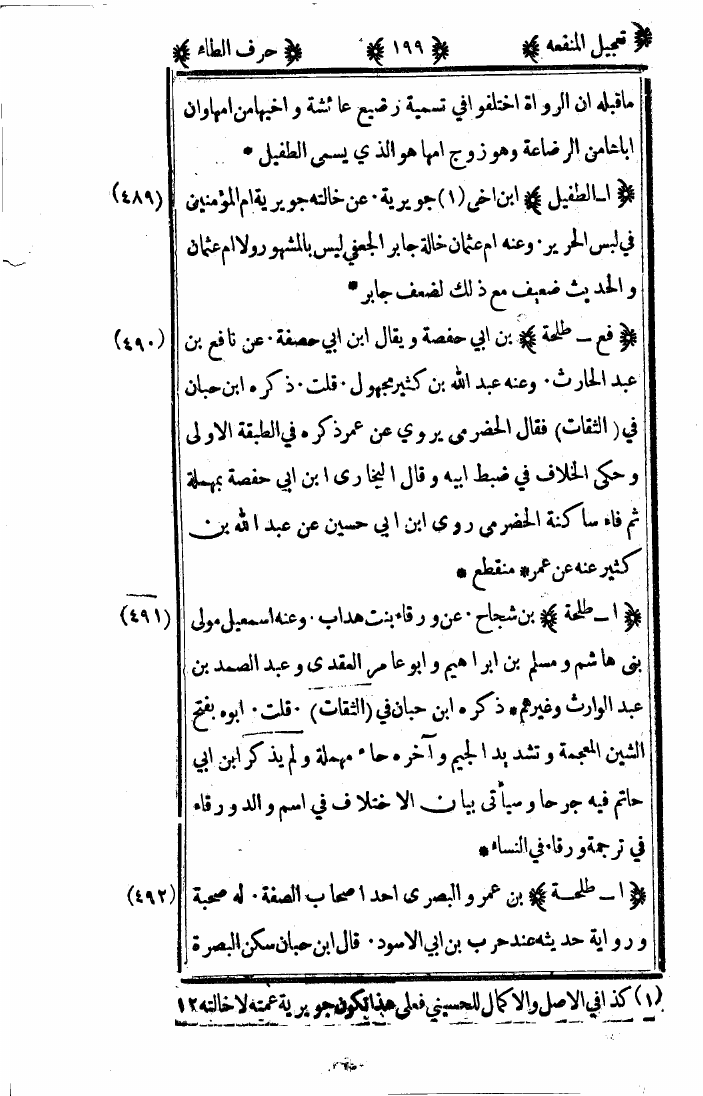 ﴿ تعجيل المنفعه ﴾ ﴿ ١٩٩ ﴾ ﴿ حرف الطاء ﴾
ماقبله ان الرواة اختلفوا في تسمية رضيع عائشة واخيها من امها وان
اباها من الرضاعة وهو زوج امها هو الذي يسمى الطفيل *
﴿ ا ـ الطفيل ﴾ ابن اخى (١) جويرية ٠ عن خالته جويرية ام المؤمنين (٤٨٩)
في لبس الحرير ٠ وعنه ام عثمان خالة جابر الجعفي ليس بالمشهور ولا ام عثمان
والحديث ضعيف مع ذلك لضعف جابر *
﴿ فع ـ طلحة ﴾ بن ابي حفصة ويقال ابن ابي حصفة ٠ عن نافع بن (٤٩٠)
عبد الحارث ٠ وعنه عبد الله بن كثير مجهول ٠ قلت ٠ ذكره ابن حبان
في (الثقات) فقال الحضرمى يروي عن عمر ذكره في الطبقة الاولى
وحكى الخلاف في ضبط ابيه وقال البخارى ابن ابي حفصة بمهملة
ثم فاء ساكنة الحضرمى روى ابن ابي حسين عن عبد الله بن
كثير عنه عن عمر * منقطع *
﴿ ا ـ طلحة ﴾ بن شجاح ٠ عن ورقاء بنت هداب ٠ وعنه اسمعيل مولى (٤٩١)
بنى هاشم ومسلم بن ابراهيم وابو عامر العقدى وعبد الصمد بن
عبد الوارث وغيرهم * ذكره ابن حبان في (الثقات) ٠ قلت ٠ ابوه بفتح
الشين المعجمة وتشديد الجيم وآخره حاء مهملة ولم يذكر ابن ابي
حاتم فيه جرحا وسيأتى بيان الاختلاف في اسم والد ورقاء
في ترجمة ورقاء في النساء *
﴿ ا ـ طلحة ﴾ بن عمرو البصرى احد اصحاب الصفة ٠ له صحبة (٤٩٢)
ورواية حديثه عند حرب بن ابي الاسود ٠ قال ابن حبان سكن البصرة
(١) كذا في الاصل والاكمال للحسيني فعلى هذا تكون جويرية عمته لا خالته ١٢